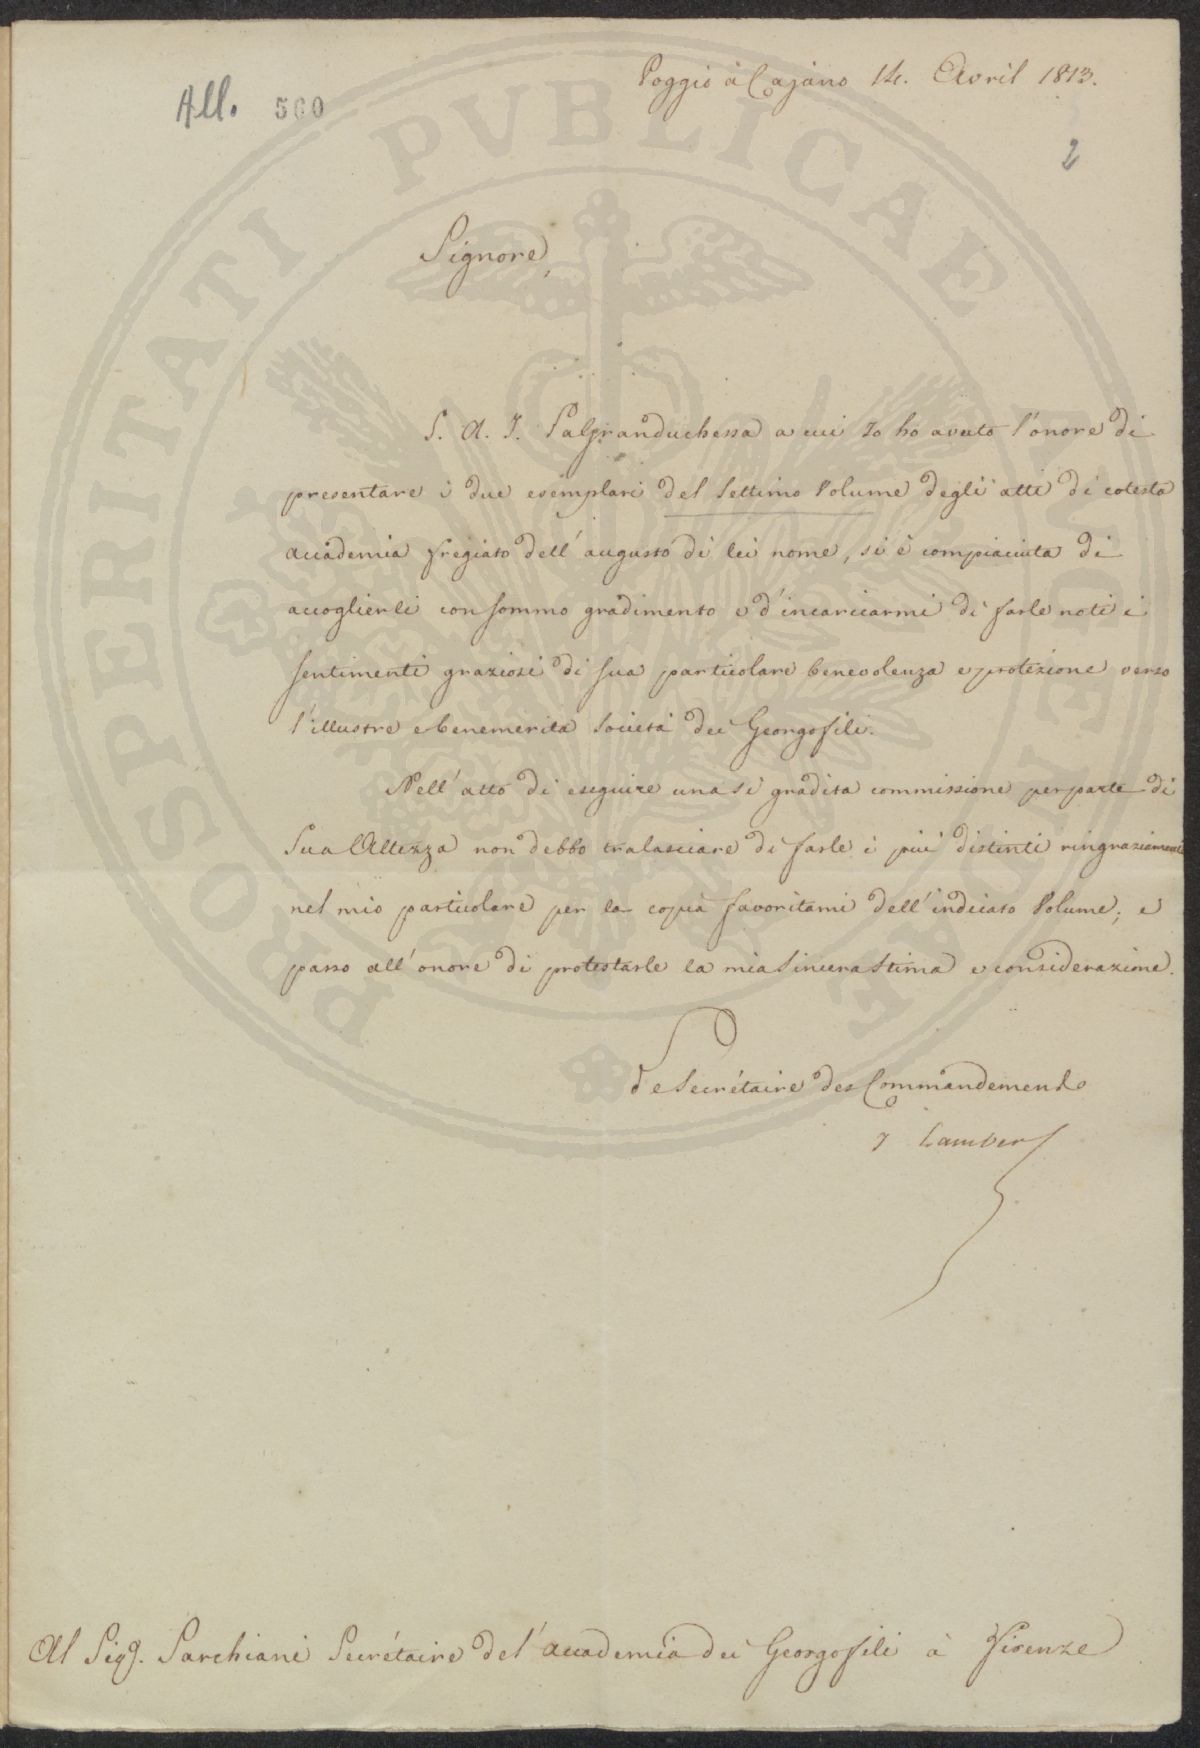 Poggio à Cajano 14. Avril 1813.
All. 560
2
PROSPERITATI PVBLICAE AVGENDAE
Signore,
S. A. I. la Granduchessa a cui Io ho avuto l'onore di
presentare i due esemplari del Settimo Volume degli atti di cotesta
accademia fregiato dell'augusto di lei nome, si è compiaciuta di
accoglierli con sommo gradimento e d'incaricarmi di farle noti i
sentimenti graziosi di sua particolare benevolenza e protezione verso
l'illustre e benemerita Società dei Georgofili.
Nell'atto di eseguire una sì gradita commissione per parte di
Sua Altezza non debbo tralasciare di farle i piu' distinti ringraziamenti
nel mio particolare per la copia favoritami dell'indicato Volume; e
passo all'onore di protestarle la mia Sincera Stima e considerazione.
Le Secrétaire des Commandements
J Lambert
Al Sigg. Sarchiani Secrétaire del'accademia dei Georgofili à Firenze